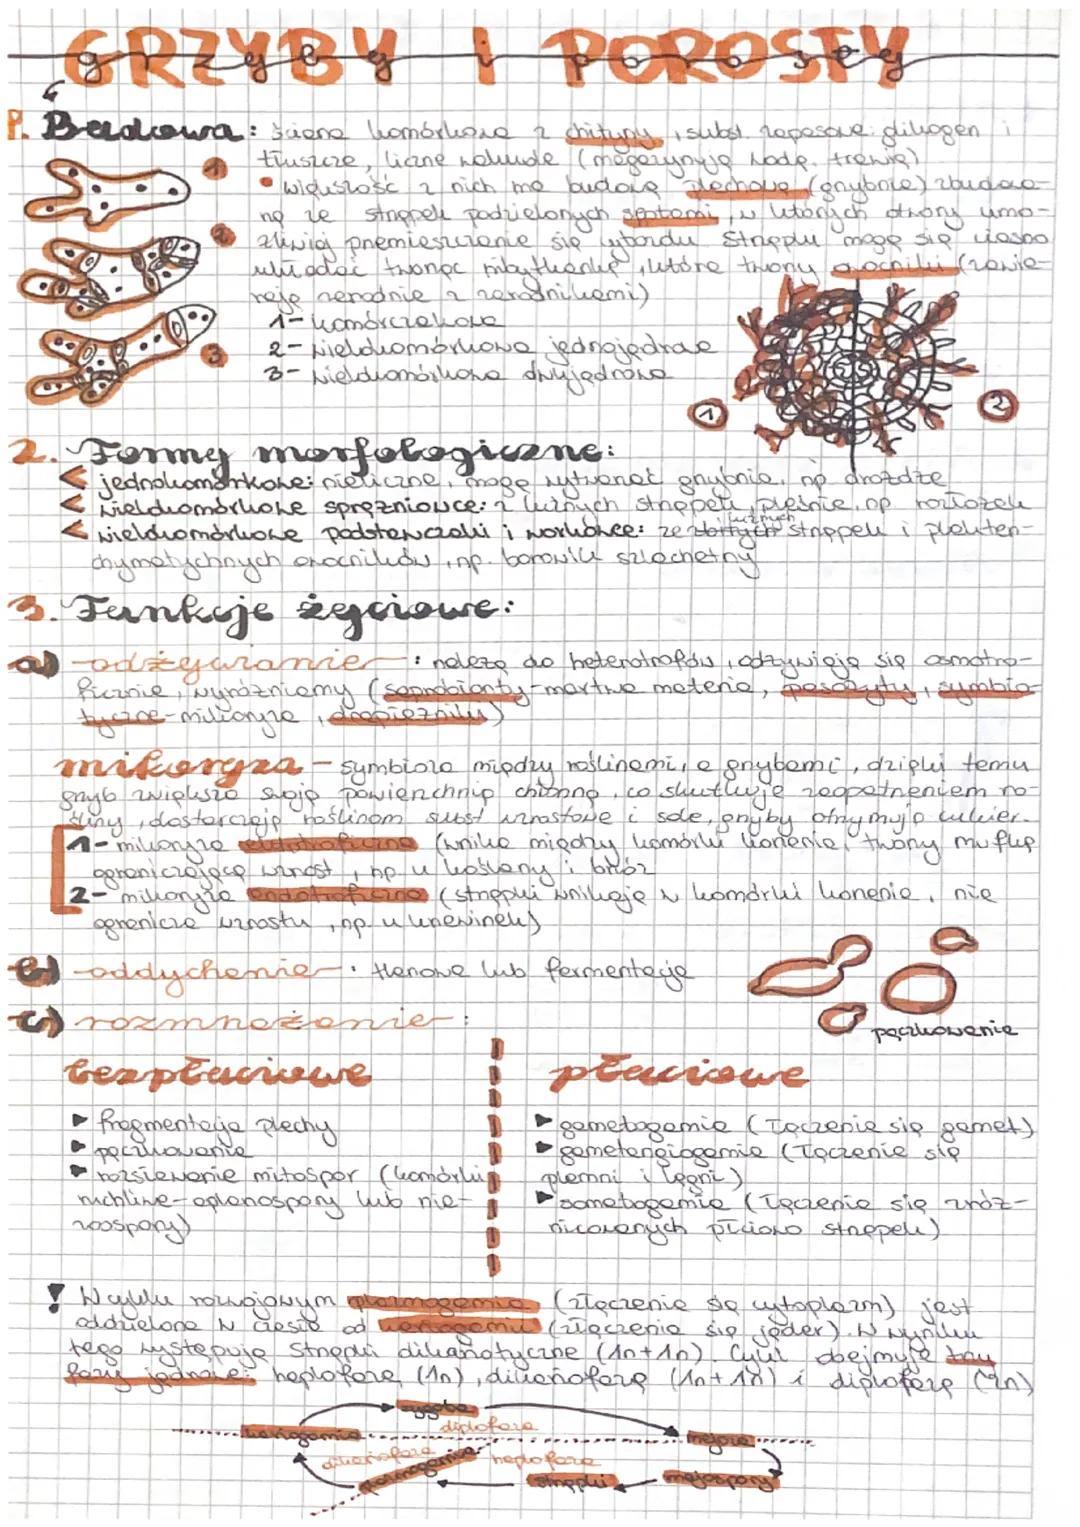 GRZYBY I POROSTY
1. Budowa: ściana komórkowa z chityny, subst. zapasowe: glikogen i
tłuszcze, liczne wakuole (magazynują wodę, trawią)
• większość z nich ma budowę plechową (grzybnię) zbudowa-
ną ze strzępek podzielonych septami, w których otwory umo-
żliwiają przemieszczanie się cytozolu. Strzępki mogą się ciasno
układać tworząc nibytkankę, które tworzą owocniki (zawie-
rają zarodnie z zarodnikami)
1 - komórczakowa
2 - wielokomórkowa jednojądrowa
3 - wielokomórkowa dwujądrowa
1
2
3
1
2
2. Formy morfologiczne:
jednokomórkowe: nieliczne, mogą wytwarzać grzybnię, np. drożdże
wielokomórkowe sprężniowce: z luźnych strzępek, pleśnie, np. rozłożek
wielokomórkowe podstawczaki i workowce: ze zbitych i luźnych strzępek i plekten-
chymatycznych owocników, np. borowik szlachetny
3. Funkcje życiowe:
a) odżywianie: należą do heterotrofów, odżywiają się osmotro-
ficznie, wyróżniamy (saprobionty - martwa materia, pasożyty, symbio-
tyczne - mikoryza, drapieżniki)
mikoryza - symbioza między roślinami, a grzybami, dzięki temu
grzyb zwiększa swoją powierzchnię chłonną, co skutkuje zaopatrzeniem ro-
śliny, dostarczają roślinom subst wzrostowe i sole, grzyby otrzymują cukier.
1 - mikoryza ektotroficzna (wnika między komórki korzenia, tworzy mufkę
ograniczającą wzrost, np. u sosny i brzóz
2 - mikoryza endotroficzna (strzępki wnikają w komórki korzenia, nie
ogranicza wzrostu, np. u krzewinek)
b) oddychanie: tlenowe lub fermentacja
c) rozmnażanie:
pączkowanie
bezpłciowe
fragmentacja plechy
pączkowanie
rozsiewanie mitospor (komórki
ruchliwe - aplanospory lub nie -
zoospory)
płciowe
gametogamia (łączenie się gamet)
gametangiogamia (łączenie się
plemni i lęgni)
somatogamia (łączenie się zróż-
nicowanych płciowo strzępek)
! W cyklu rozwojowym plazmogamia (złączenie się cytoplazm) jest
oddzielona w czasie od kariogamii (złączenia się jąder). W wyniku
tego występują strzępki dikariotyczne (1n+1n). Cykl obejmuje trzy
fazy jądrowe: haplofazę (1n), dikariofazę (1n+1n) i diplofazę (2n)
zygota
diplofaza
kariogamia
mejoza
dikariofaza
plazmogamia
haplofaza
strzępki
mejospory